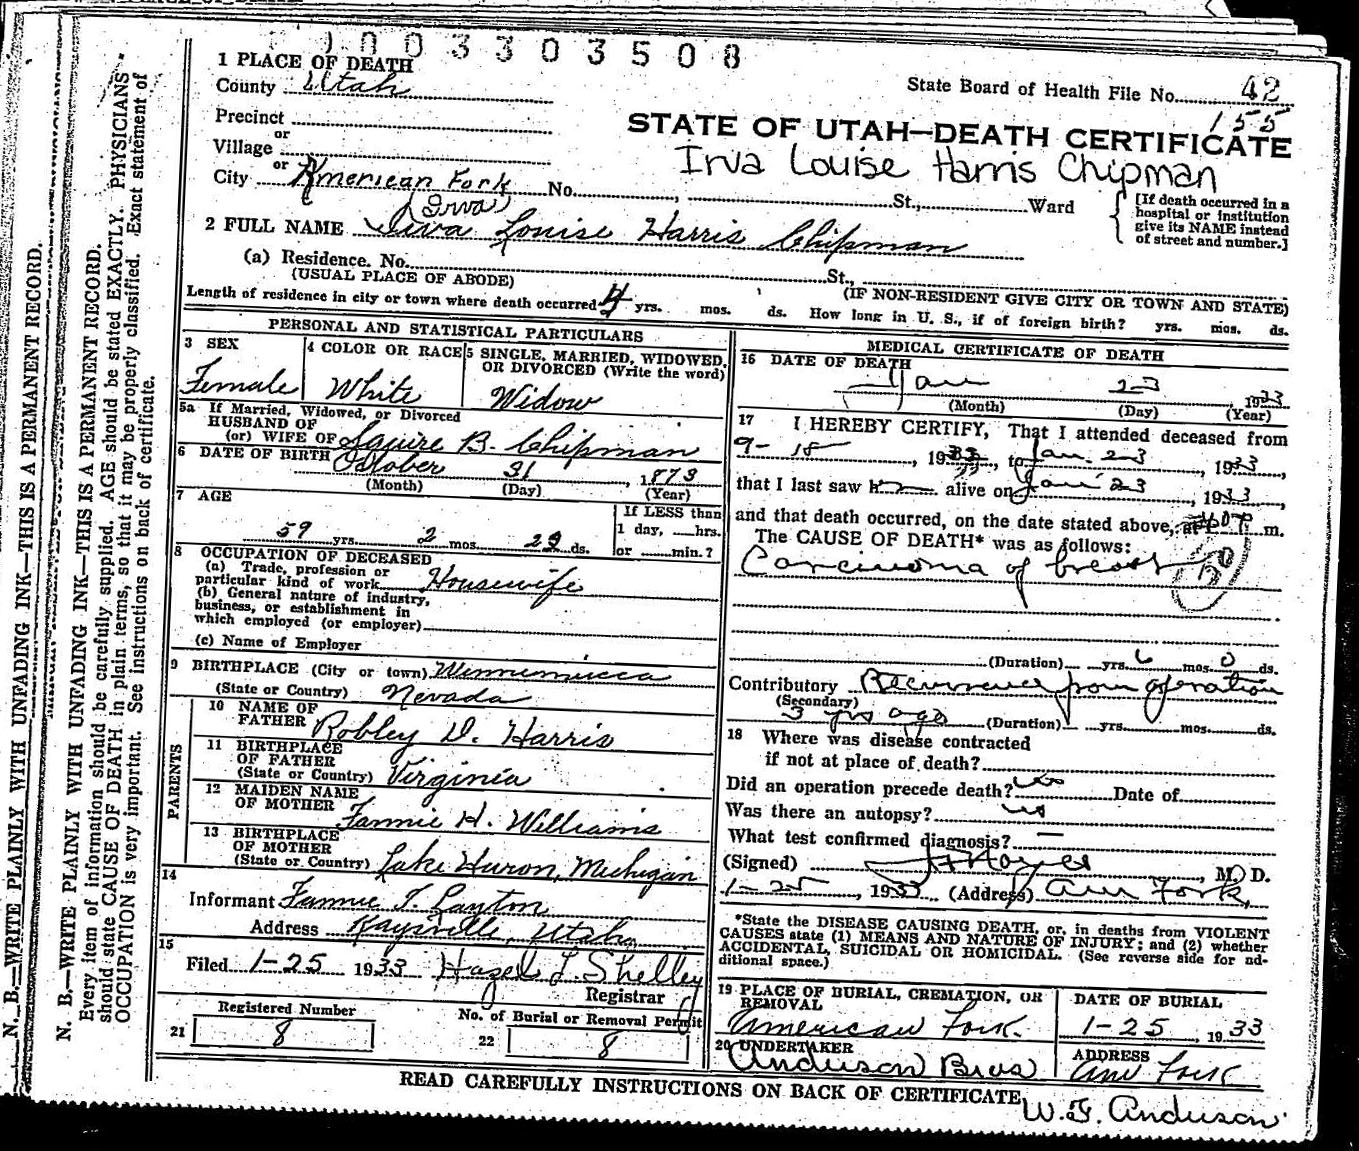 1003303508
1 PLACE OF DEATH
County Utah
State Board of Health File No. 42
155
Precinct
or
Village
or
City American Fork No. , St., Ward
STATE OF UTAH—DEATH CERTIFICATE
Irva Louise Harris Chipman
[If death occurred in a
hospital or institution
give its NAME instead
of street and number.]
(Irva)
2 FULL NAME Louise Harris Chipman
(a) Residence. No. St.,
(USUAL PLACE OF ABODE) (IF NON-RESIDENT GIVE CITY OR TOWN AND STATE)
Length of residence in city or town where death occurred 4 yrs. mos. ds. How long in U. S., if of foreign birth? yrs. mos. ds.
PERSONAL AND STATISTICAL PARTICULARS
3 SEX
Female
4 COLOR OR RACE
White
5 SINGLE, MARRIED, WIDOWED,
OR DIVORCED (Write the word)
Widow
5a If Married, Widowed, or Divorced
HUSBAND OF
(or) WIFE OF Squire B. Chipman
6 DATE OF BIRTH October 31, 1873
(Month) (Day) (Year)
7 AGE
59 yrs. 2 mos. ds.
If LESS than
1 day, hrs.
or min.?
8 OCCUPATION OF DECEASED
(a) Trade, profession or
particular kind of work Housewife
(b) General nature of industry,
business, or establishment in
which employed (or employer)
(c) Name of Employer
9 BIRTHPLACE (City or town) Winnemucca
(State or Country) Nevada
PARENTS
10 NAME OF
FATHER Robley D. Harris
11 BIRTHPLACE
OF FATHER
(State or Country) Virginia
12 MAIDEN NAME
OF MOTHER Fannie H. Williams
13 BIRTHPLACE
OF MOTHER
(State or Country) Lake Huron, Michigan
14
Informant Fannie T. Layton
Address Kaysville, Utah
15
Filed 1-25 1933 Hazel L. Shelley
Registrar
Registered Number
21 8
No. of Burial or Removal Permit
22 8
MEDICAL CERTIFICATE OF DEATH
16 DATE OF DEATH
Jan 23 1933
(Month) (Day) (Year)
17 I HEREBY CERTIFY, That I attended deceased from
9-15, 19, to Jan. 23, 1933,
that I last saw h alive on Jan 23, 1933,
and that death occurred, on the date stated above, at m.
The CAUSE OF DEATH* was as follows:
Carcinoma of breast
50
(Duration) yrs. 6 mos. 0 ds.
Contributory Recurrence from operation
(Secondary)
3 yrs ago (Duration) yrs. mos. ds.
18 Where was disease contracted
if not at place of death?
Did an operation precede death? Date of
Was there an autopsy?
What test confirmed diagnosis? —
(Signed) Noyes, M. D.
1-25, 1933 (Address) Am Fork,
*State the DISEASE CAUSING DEATH, or, in deaths from VIOLENT
CAUSES state (1) MEANS AND NATURE OF INJURY; and (2) whether
ACCIDENTAL, SUICIDAL OR HOMICIDAL. (See reverse side for ad-
ditional space.)
19 PLACE OF BURIAL, CREMATION, OR
REMOVAL
American Fork.
DATE OF BURIAL
1-25, 1933
20 UNDERTAKER
Anderson Bros
ADDRESS
Am Fork
READ CAREFULLY INSTRUCTIONS ON BACK OF CERTIFICATE
W. F. Anderson
N. B.—WRITE PLAINLY WITH UNFADING INK—THIS IS A PERMANENT RECORD.
N. B.—WRITE PLAINLY WITH UNFADING INK—THIS IS A PERMANENT RECORD.
Every item of information should be carefully supplied. AGE should be stated EXACTLY. PHYSICIANS
should state CAUSE OF DEATH in plain terms, so that it may be properly classified. Exact statement of
OCCUPATION is very important. See instructions on back of certificate.